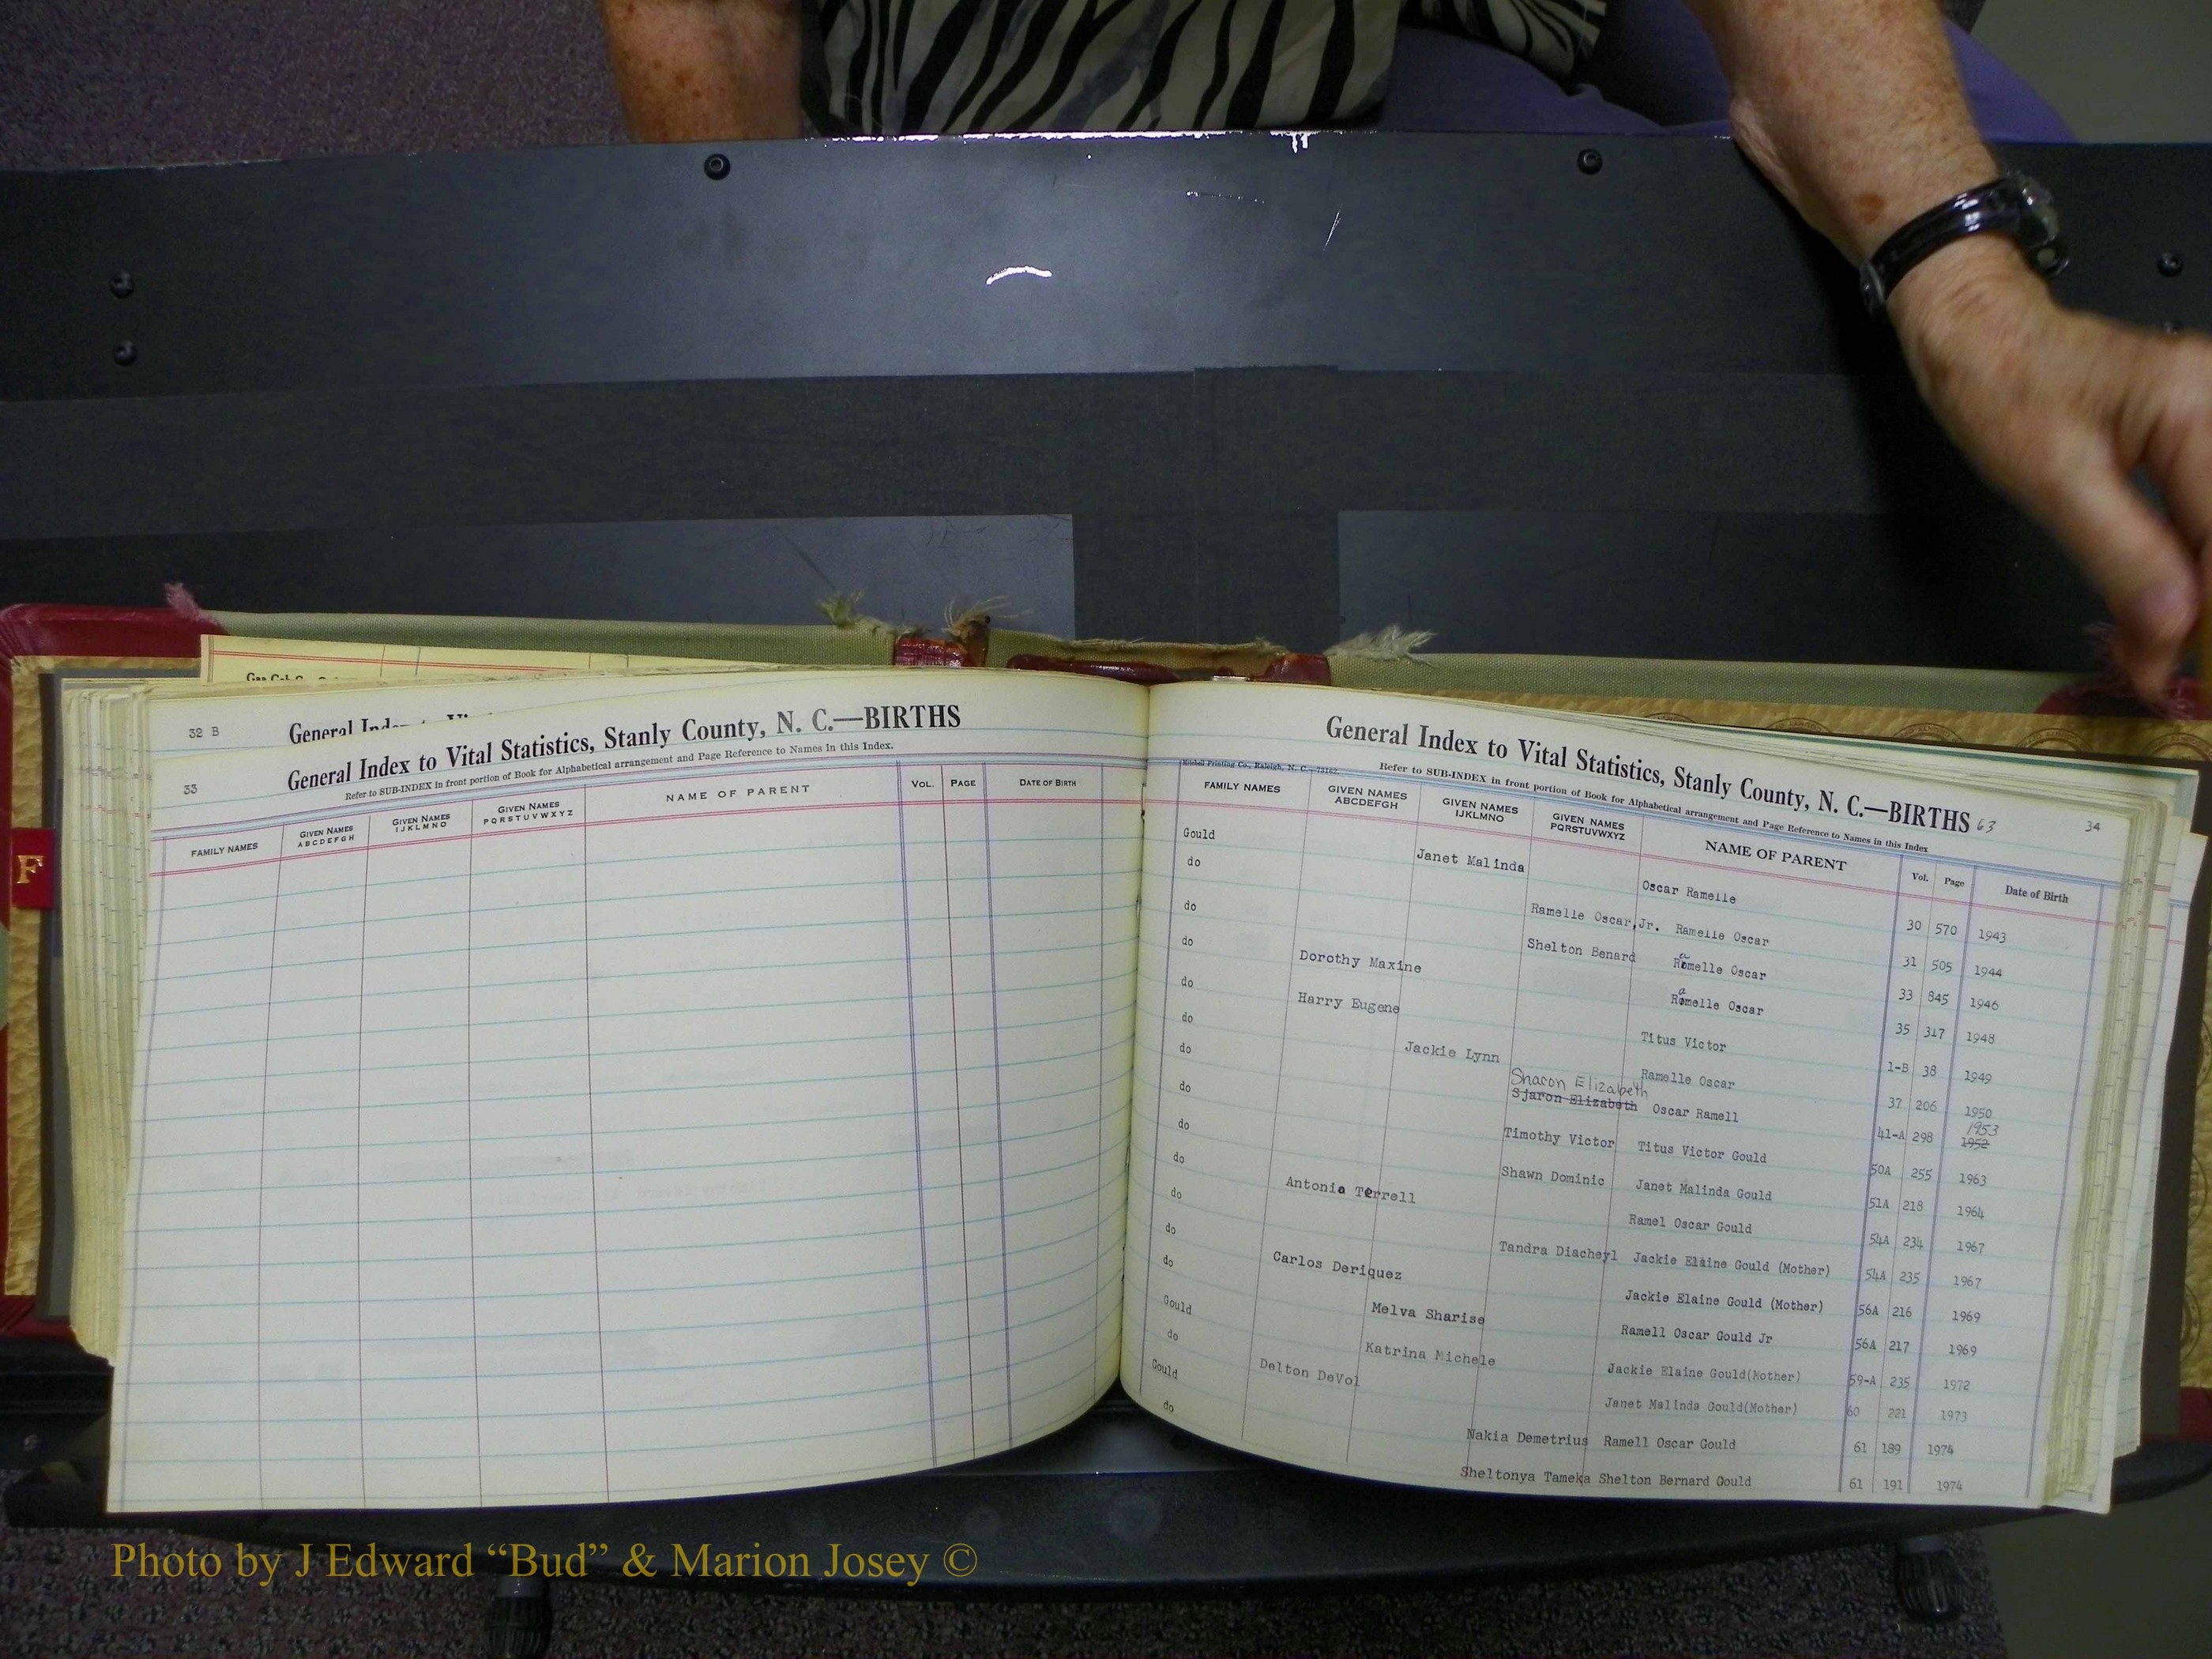 32 B
General Index to
33
General Index to Vital Statistics, Stanly County, N. C.—BIRTHS
Refer to SUB-INDEX in front portion of Book for Alphabetical arrangement and Page Reference to Names in this Index.
FAMILY NAMES GIVEN NAMES ABCDEFGH GIVEN NAMES IJKLMNO GIVEN NAMES PQRSTUVWXYZ NAME OF PARENT VOL. PAGE DATE OF BIRTH
F
General Index to Vital Statistics, Stanly County, N. C.—BIRTHS 63 34
Mitchell Printing Co., Raleigh, N. C.
Refer to SUB-INDEX in front portion of Book for Alphabetical arrangement and Page Reference to Names in this Index
FAMILY NAMES GIVEN NAMES ABCDEFGH GIVEN NAMES IJKLMNO GIVEN NAMES PQRSTUVWXYZ NAME OF PARENT Vol. Page Date of Birth
Gould Janet Malinda Oscar Ramelle 30 570 1943
do Ramelle Oscar,Jr. Ramelle Oscar 31 505 1944
do Shelton Benard Ramelle Oscar 33 845 1946
do Dorothy Maxine Ramelle Oscar 35 317 1948
do Harry Eugene Titus Victor 1-B 38 1949
do Jackie Lynn Ramelle Oscar 37 206 1950
Sharon Elizabeth 1953
do Sjaron Elizabeth Oscar Ramell 41-A 298 1952
do Timothy Victor Titus Victor Gould 50A 255 1963
do Shawn Dominic Janet Malinda Gould 51A 218 1964
do Antonia Terrell Ramel Oscar Gould 54A 234 1967
do Tandra Diacheyl Jackie Elaine Gould (Mother) 54A 235 1967
do Carlos Deriquez Jackie Elaine Gould (Mother) 56A 216 1969
do Melva Sharise Ramell Oscar Gould Jr 56A 217 1969
Gould Katrina Michele Jackie Elaine Gould(Mother) 59-A 235 1972
do Delton DeVol Janet Malinda Gould(Mother) 60 221 1973
Gould Nakia Demetrius Ramell Oscar Gould 61 189 1974
do Sheltonya Tameka Shelton Bernard Gould 61 191 1974
Photo by J Edward “Bud” & Marion Josey ©